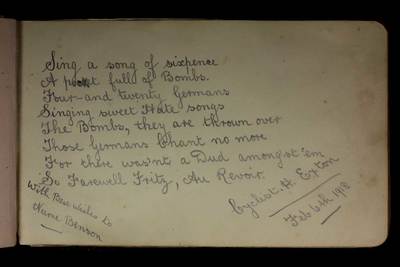 Sing a song of sixpence
A pocket full of Bombs.
Four-and twenty Germans
Singing sweet Hate songs
The Bombs, they are thrown over
Those Germans Chant no more
For there wasn't a Dud amongst 'em
So Farewell Fritz, Au Revoir.
With Best Wishes to
Name Benson
Cyclist. H. Exton
Feb 6th 1918